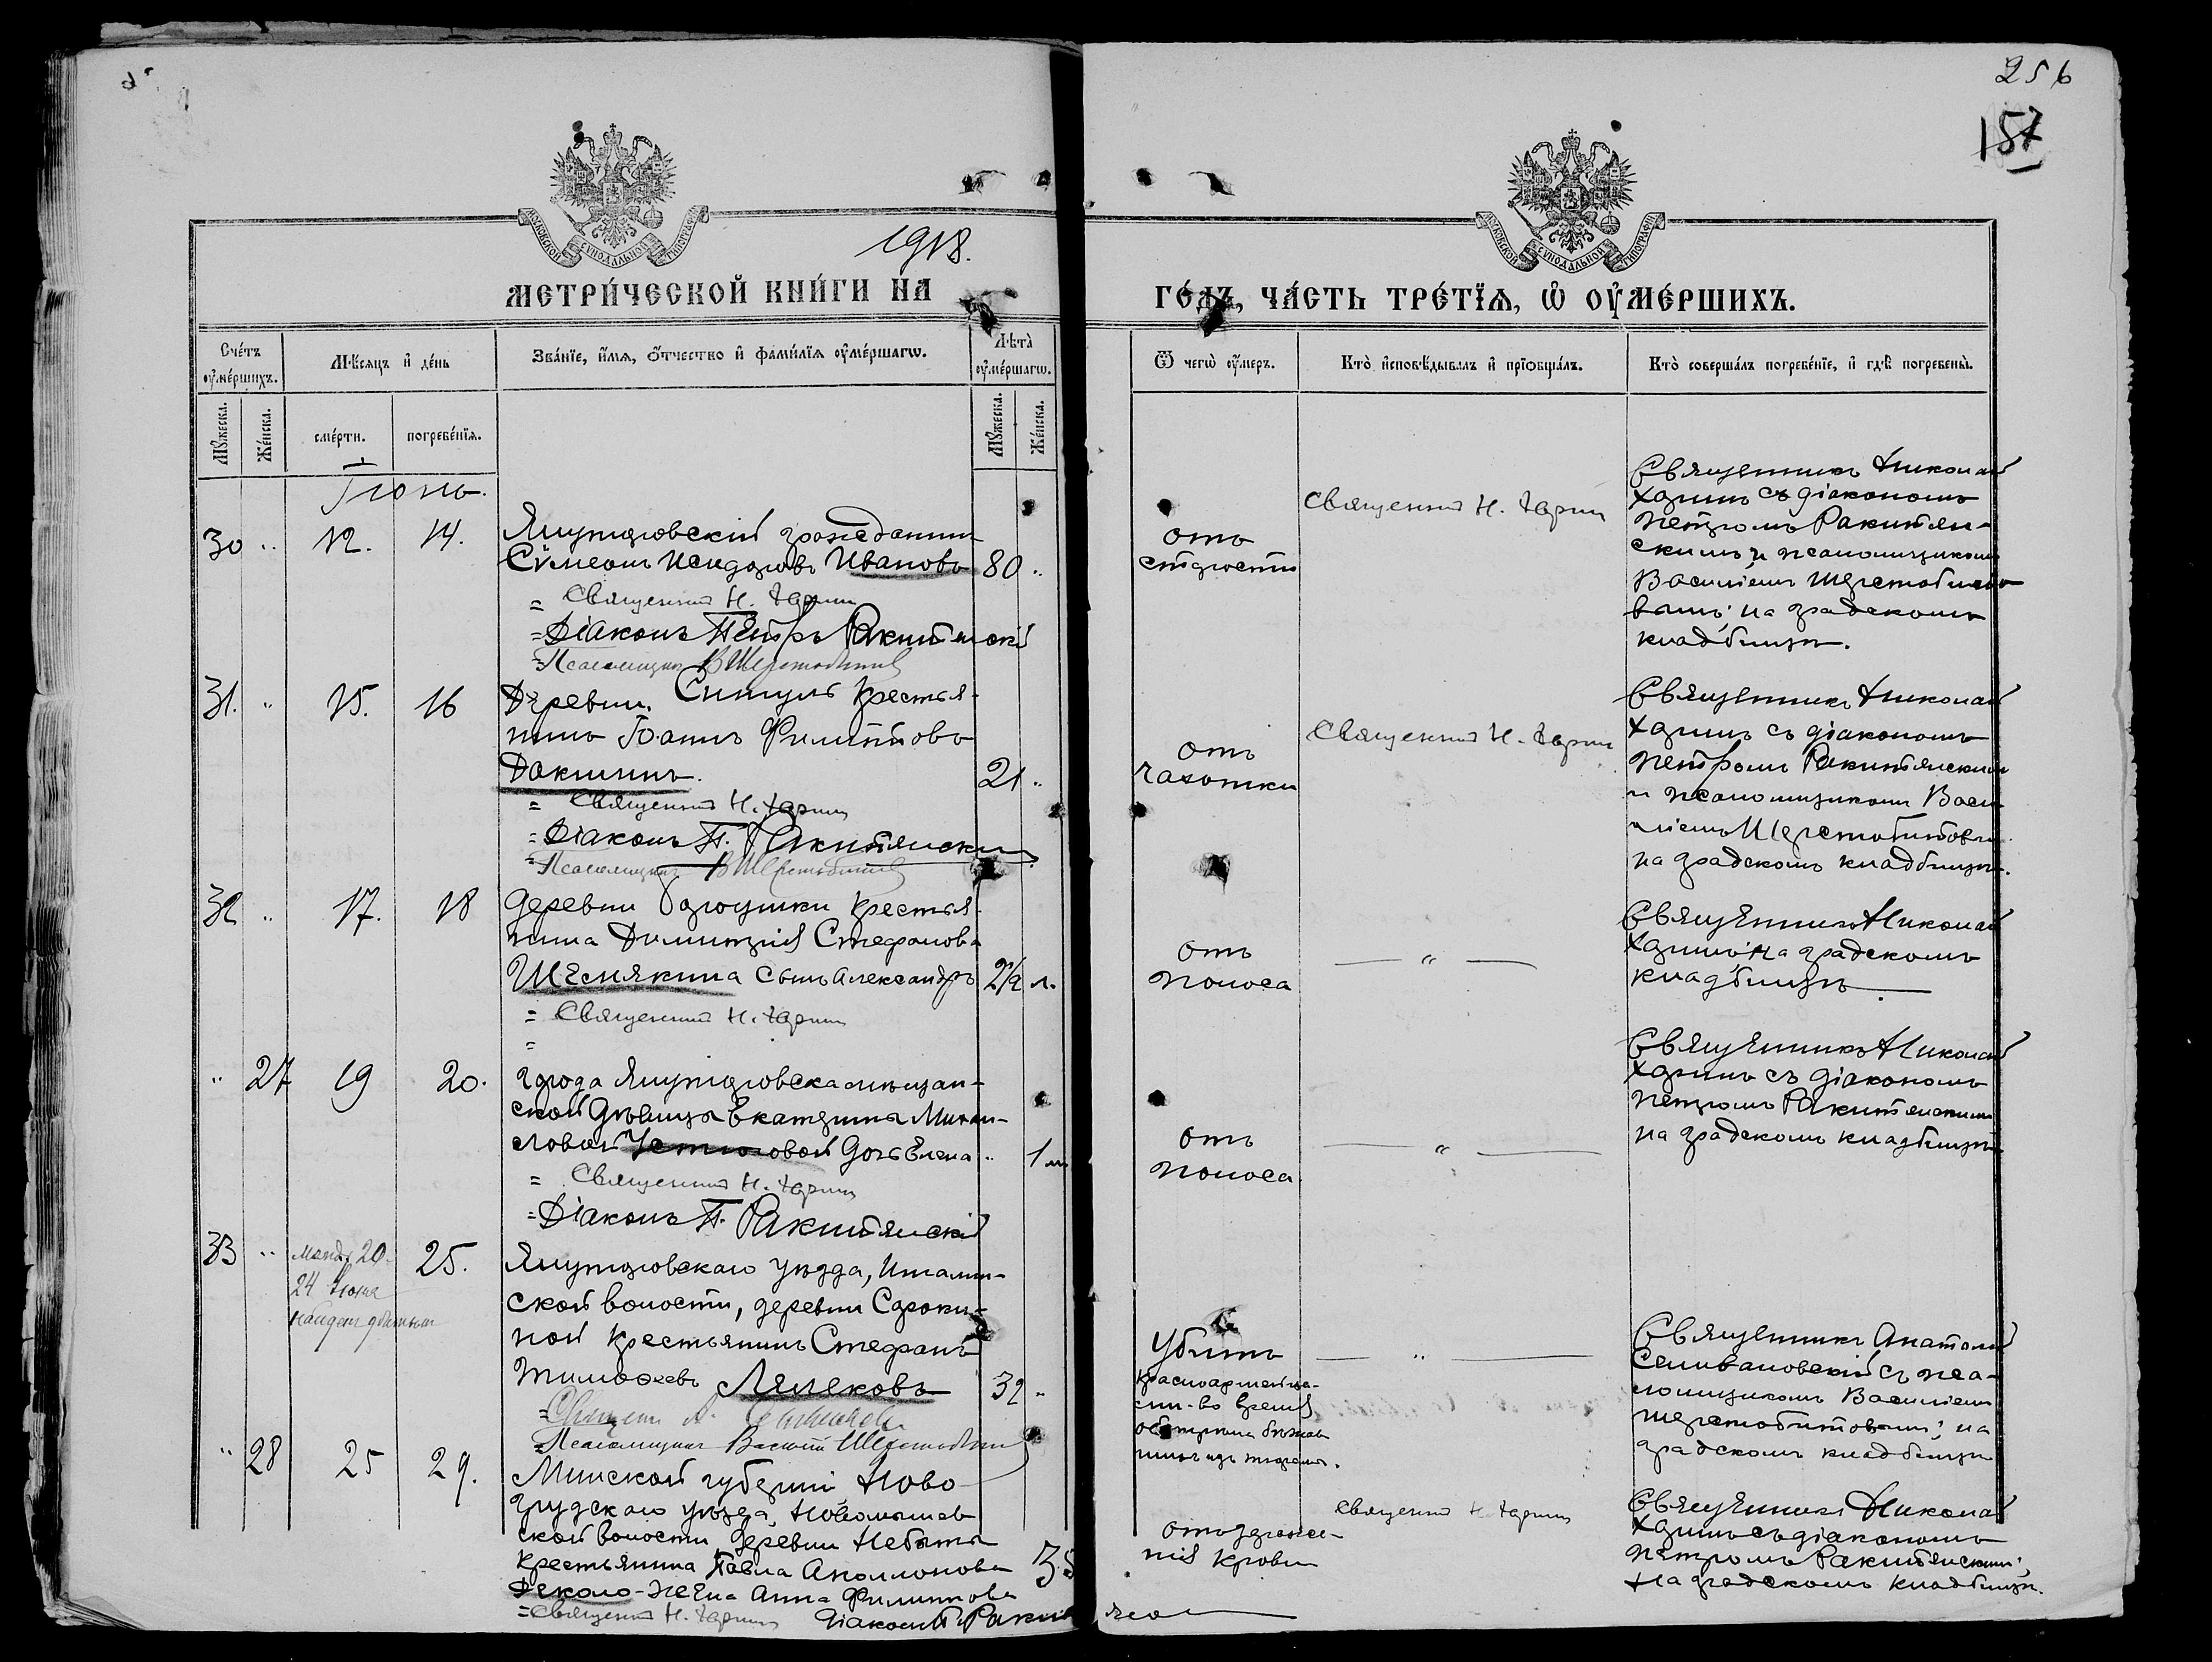 256
157
1918.
МЕТРИ́ЧЕСКОЙ КНИ́ГИ НА
ГО́ДЪ, ЧА́СТЬ ТРЕ́ТЇѦ, Ѡ҆ ОУ҆МЕ́РШИХЪ.
Сче́тъ оу҆ме́ршихъ.
Мѣ́сѧцъ и҆ де́нь
Зва́нїе, и҆́мѧ, ѻ҆́тчество и҆ фами́лїѧ оу҆ме́ршагѡ.
Лѣ́та оу҆ме́ршагѡ.
Ѿ чегѡ̀ оу҆́меръ.
Кто̀ и҆сповѣ́дывалъ и҆ прїѡбща́лъ.
Кто̀ соверша́лъ погребе́нїе, и҆ гдѣ̀ погребены̀.
Мꙋ́жеска.
Же́нска.
сме́рти.
погребе́нїѧ.
Мꙋ́жеска.
Же́нска.
Іюнь.
30 " 12. 14.
Ялуторовскій гражданинъ
Сѵмеонъ Исидоровъ Ивановъ 80 "
= Священникъ Н. Харинъ
= Діаконъ Петръ Ракитянскій
= Псаломщикъ В Шерстобитовъ
отъ
старости
Священникъ Н. Харинъ
Священникъ Николай
Харинъ съ діакономъ
Петромъ Ракитян-
скимъ и псаломщикомъ
Василіемъ Шерстобито-
вымъ; на градскомъ
кладбищѣ.
31. " 15. 16
Деревни Сингуль крестья-
нинъ Іоаннъ Филипповъ
Докшинъ. 21 "
= Священникъ Н. Харинъ
= Діаконъ П. Ракитянскій
= Псаломщикъ В Шерстобитовъ
отъ
чахотки
Священникъ Н. Харинъ
Священникъ Николай
Харинъ съ діакономъ
Петромъ Ракитянскимъ
и псаломщикомъ Васи-
ліемъ Шерстобитовым
на градскомъ кладбищѣ.
32 " 17. 18
Деревни крестья-
нина Димитрія Стефанова
Шеснякина сынъ Александръ 2½ л.
= Священникъ Н. Харинъ
=
отъ
поноса
— " —
Священникъ Николай
Харинъ; на градскомъ
кладбищѣ.
" 27 19 20.
Города Ялуторовска мѣщан-
ской дѣвицы Екатерины Михаи-
ловой Устюговой дочь Елена " 1 м
= Священникъ Н. Харинъ
= Діаконъ П. Ракитянскій
отъ
поноса
— " —
Священникъ Николай
Харинъ съ діакономъ
Петромъ Ракитянскимъ
на градскомъ кладбищѣ.
33 " 20. 25.
24 Іюня
найденъ убитымъ
Ялуторовскаго уѣзда,
ской волости, деревни Сороки-
ной крестьянинъ Стефанъ
Тимофеевъ Лямковъ 32 "
= Псаломщикъ Василій Шерстобитовъ
Убитъ
красноармейца-
ми во время
изъ тюрьмы.
— " —
Священникъ Анатолій
Селивановскій съ пса-
ломщикомъ Василіемъ
Шерстобитовымъ; на
градскомъ кладбищѣ
" 28 25 29.
Минской губерніи Ново-
грудскаго уѣзда,
ской волости деревни
крестьянина Павла Аполлонова
Деколо-жена Анна Филиппова 35
= Священникъ Н. Харинъ Діаконъ П. Ракитянскій
отъ зараже-
нія крови
Священникъ Н. Харинъ
Священникъ Николай
Харинъ съ діакономъ
Петромъ Ракитянскимъ;
на градскомъ кладбищѣ.